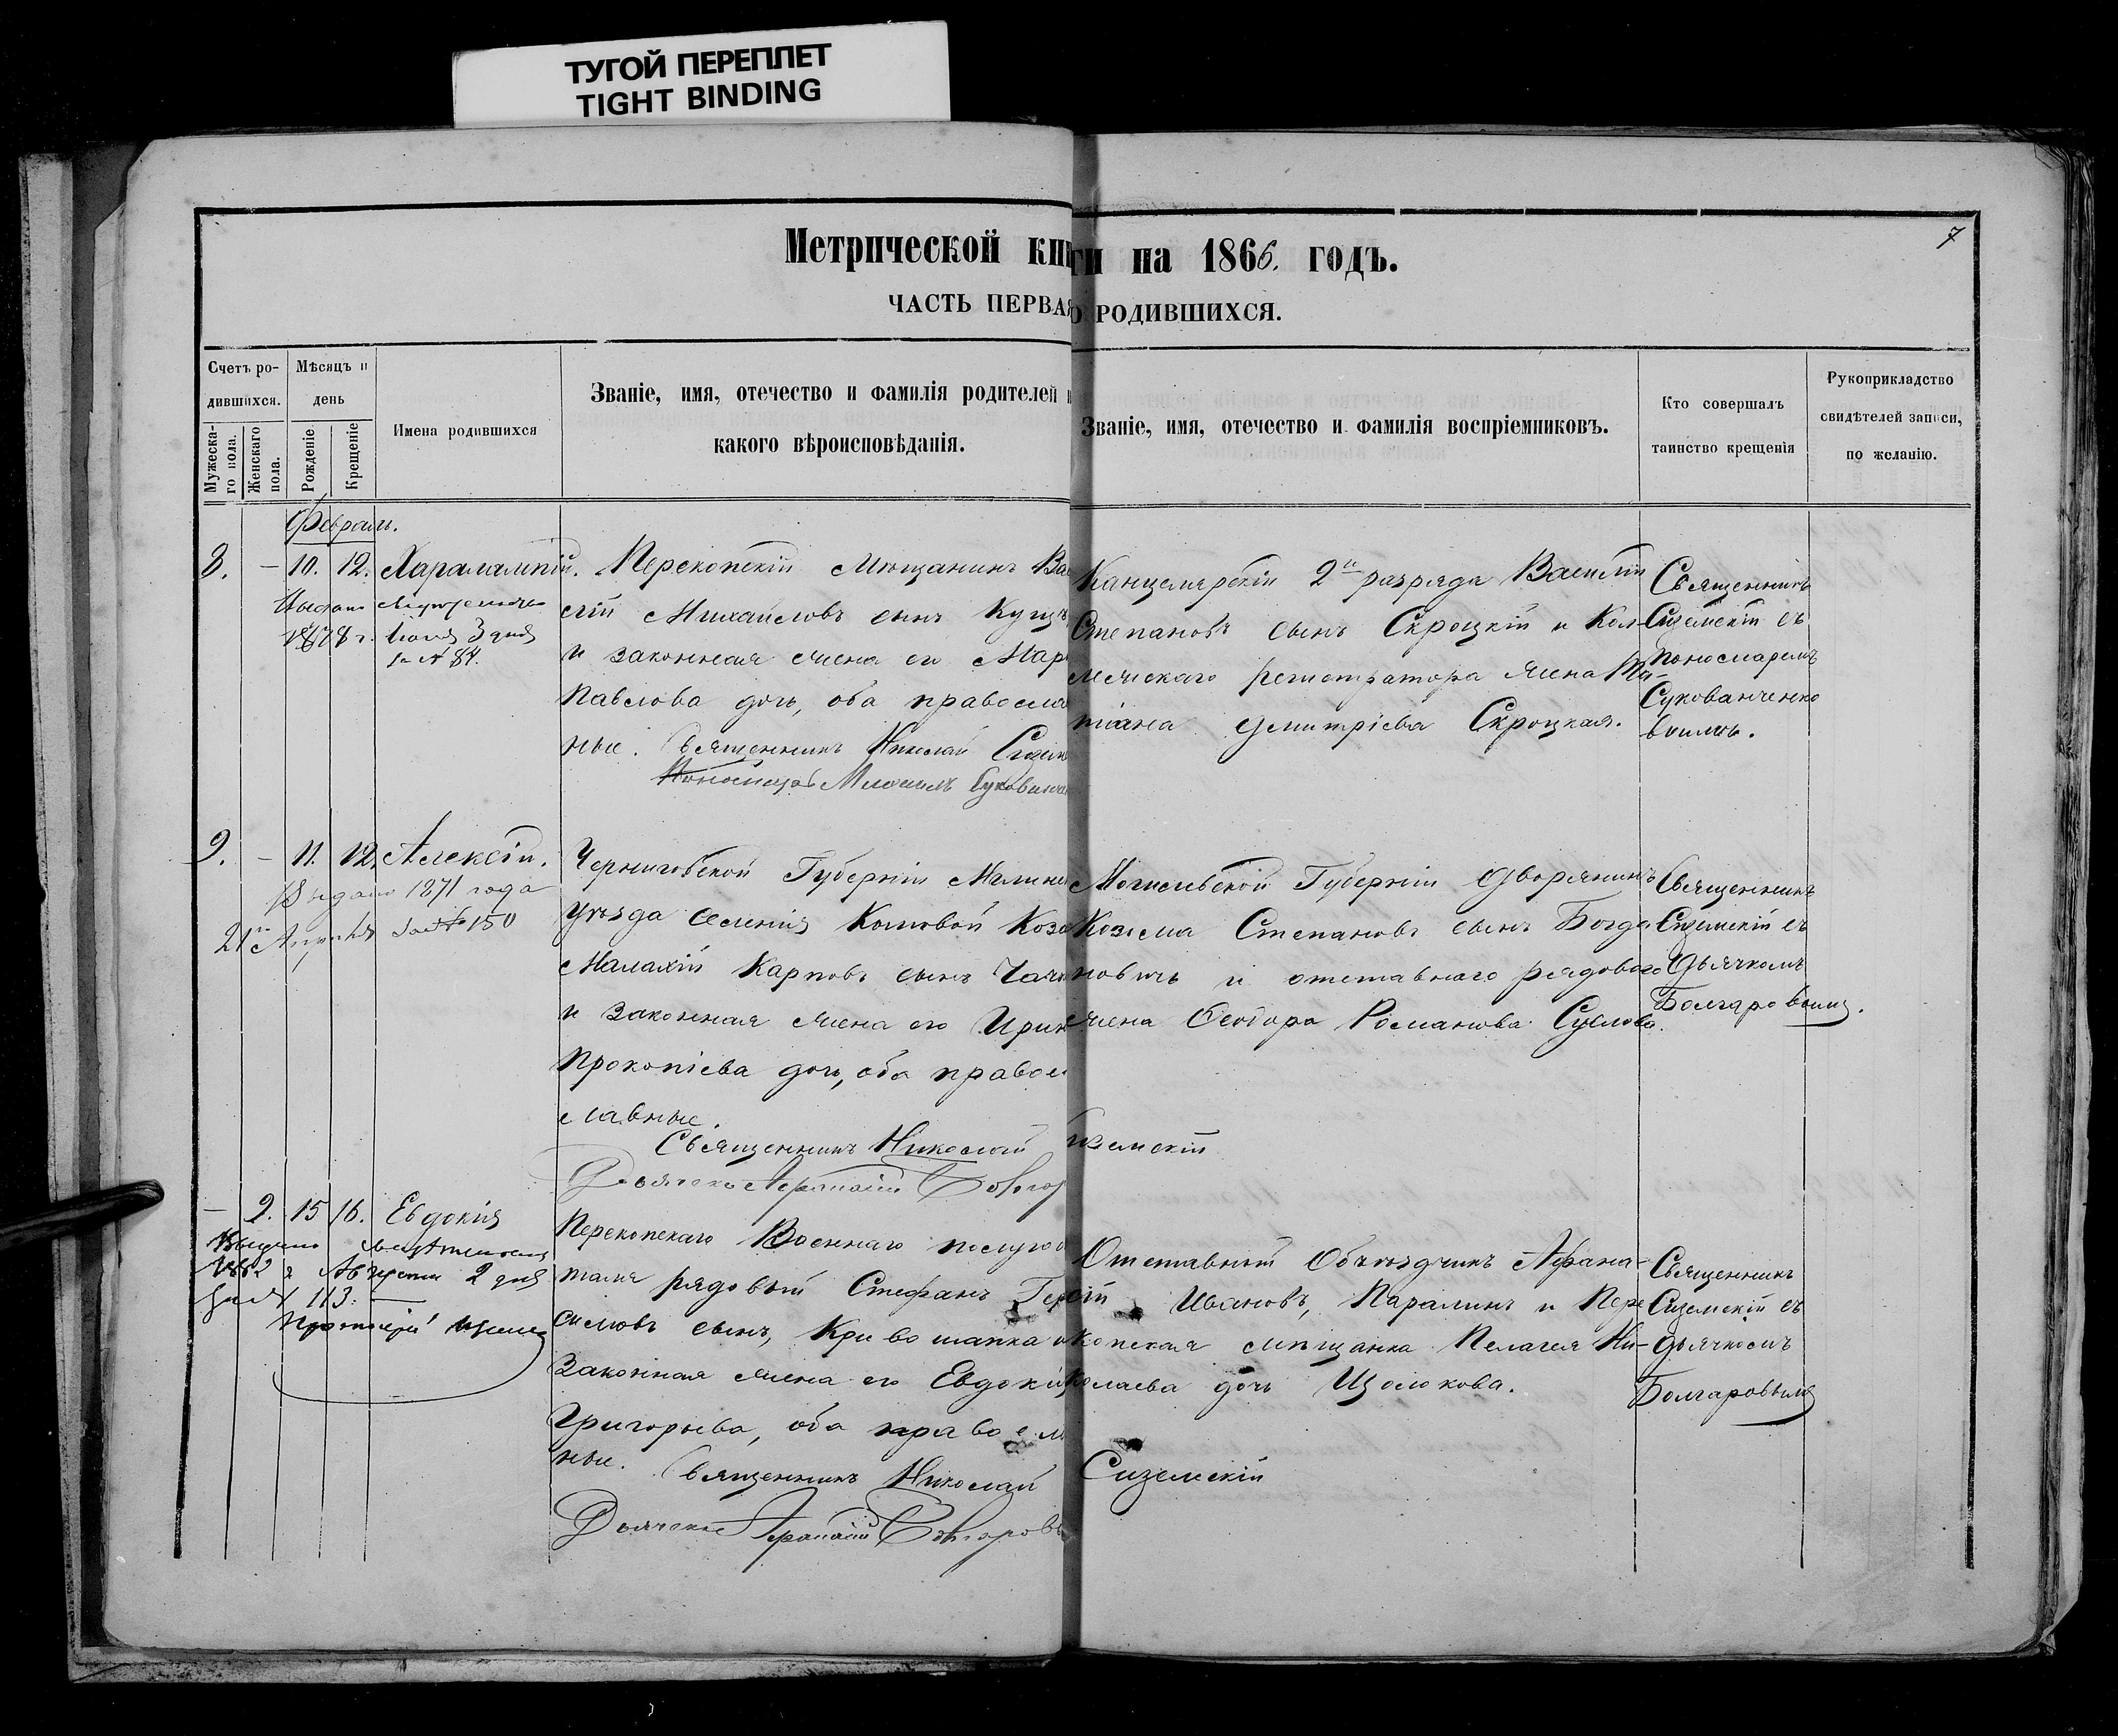 ТУГОЙ ПЕРЕПЛЕТ
TIGHT BINDING
7
Метрической кни ги на 1866. годъ.
ЧАСТЬ ПЕРВАЯ О РОДИВШИХСЯ.
Счетъ ро-
дившихся.
Мужеска-
го пола.
Женскаго
пола.
Мѣсяцъ и
день
Рожденіе
Крещеніе
Имена родившихся
Званіе, имя, отечество и фамилія родителей и
какого вѣроисповѣданія.
Званіе, имя, отечество и фамилія воспріемниковъ.
Кто совершалъ
таинство крещенія
Рукоприкладство
свидѣтелей записи,
по желанію.
Февраль.
8. – 10. 12. Харалампій.
Выдано
1878 г. Іюля 3 дня
за № 84.
Перекопскій Мѣщанинъ Ва
сілій Михайловъ сынъ Куцъ
и законная жена его Мар
Павлова дочь, оба правосла
ные. Священникъ Николай Сизем
Пономарь Михаилъ Сукованче
Канцелярскій 2го разряда Василій
Степановъ сынъ Скроцкій и Кол-
лежскаго регистратора жена Та-
тіана Дмитріева Скроцкая.
Священникъ
Сиземскій съ
пономаремъ
Сукованченко
вымъ.
9. – 11. 12. Алексій.
Выдано 1871 года
21го за № 150
Черниговской Губерніи
уѣзда селенія Козо
Малахій Карповъ сынъ
и законная жена его Ирин
Прокопіева дочь, оба право
славные.
Священникъ Николай Сиземскій
Дьячекъ Афанасій Болгар
Могилевской Губерніи Дворянинъ
Козьма Степановъ сынъ Богда
новичъ и отставнаго рядоваго
жена Ѳеодора Романова Суслова.
Священникъ
Сиземскій съ
Дьячкомъ
Болгаровымъ.
– 2. 15 16. Евдокія
Выдано
Августа 2 дня
за № 113.
Протоіерей
Перекопскаго Военнаго полугос
таля рядовый Стефанъ Гер
симовъ сынъ, Кривошапка и
законная жена его Евдокія
Григорьева, оба правосла
ные. Священникъ Николай Сиземскій
Дьячекъ Афанасій Болгаровъ
Отставной Объѣздчикъ Афана-
сій Ивановъ, Паралинъ и Пере
копская мѣщанка Пелагея Ни-
колаева дочь Щолокова.
Священникъ
Сиземскій съ
дьячкомъ
Болгаровымъ